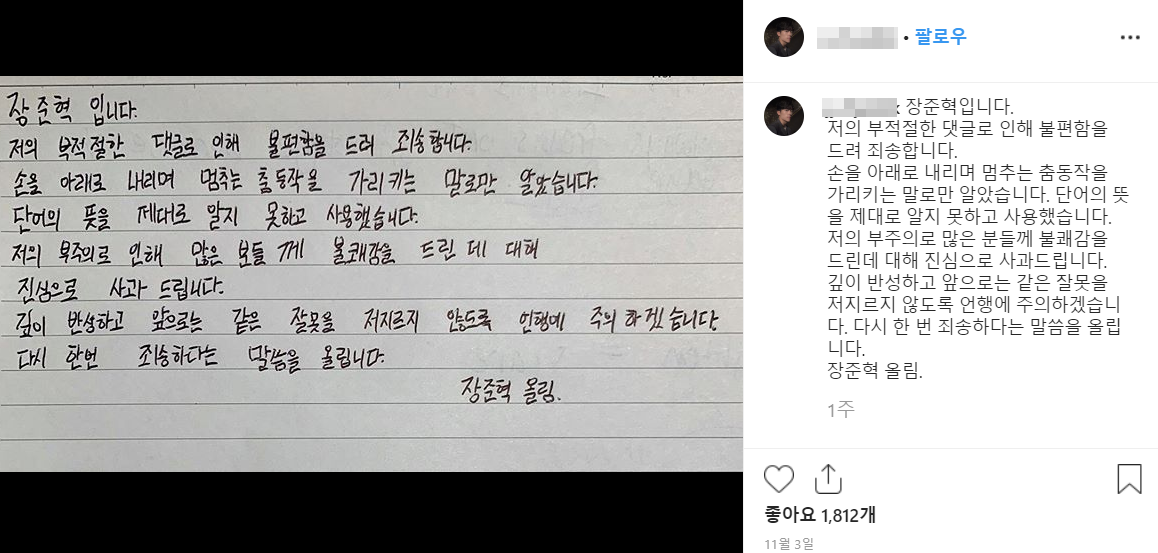 장준혁 입니다.
저의 부적절한 댓글로 인해 불편함을 드려 죄송합니다.
손을 아래로 내리며 멈추는 춤동작을 가리키는 말로만 알았습니다.
단어의 뜻을 제대로 알지 못하고 사용했습니다.
저의 부주의로 인해 많은 분들 께 불쾌감을 드린 데 대해
진심으로 사과 드립니다.
깊이 반성하고 앞으로는 같은 잘못을 저지르지 않도록 언행에 주의 하겠습니다
다시 한번 죄송하다는 말씀을 올립니다.
장준혁 올림.
• 팔로우
장준혁입니다.
저의 부적절한 댓글로 인해 불편함을
드려 죄송합니다.
손을 아래로 내리며 멈추는 춤동작을
가리키는 말로만 알았습니다. 단어의 뜻
을 제대로 알지 못하고 사용했습니다.
저의 부주의로 많은 분들께 불쾌감을
드린데 대해 진심으로 사과드립니다.
깊이 반성하고 앞으로는 같은 잘못을
저지르지 않도록 언행에 주의하겠습니
다. 다시 한 번 죄송하다는 말씀을 올립
니다.
장준혁 올림.
1주
좋아요 1,812개
11월 3일